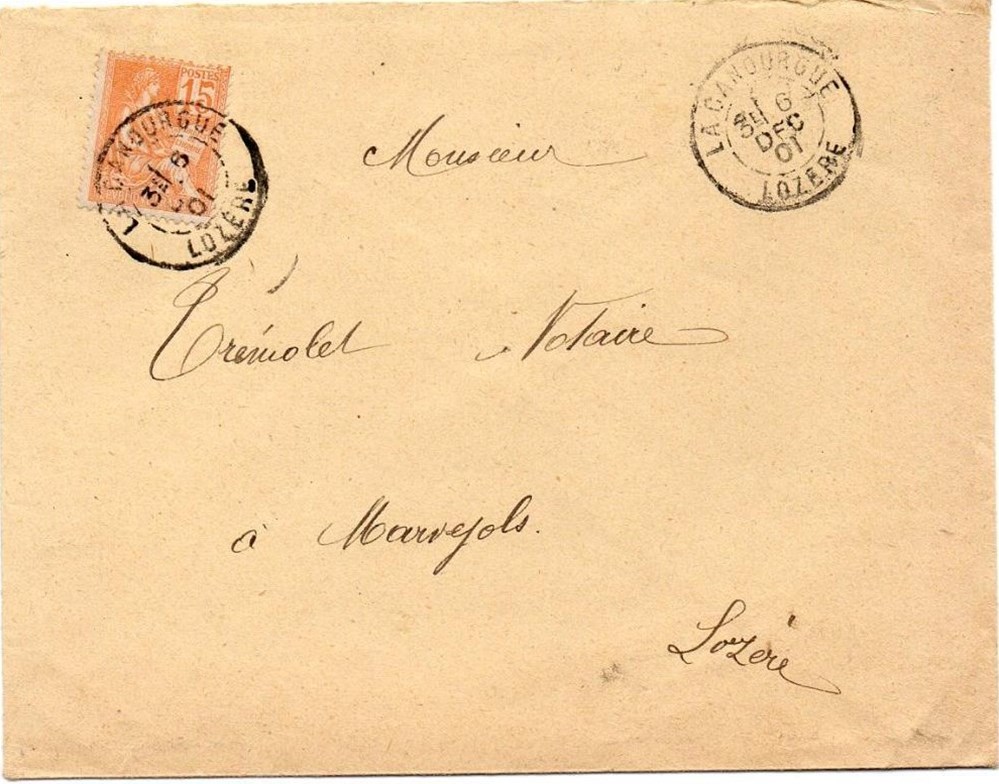 POSTES
15
LA CANOURGUE
3E 6
01
LOZÈRE
LA CANOURGUE
3E 6
DEC
01
LOZÈRE
Monsieur
Trémolet Notaire
à Marvejols.
Lozère